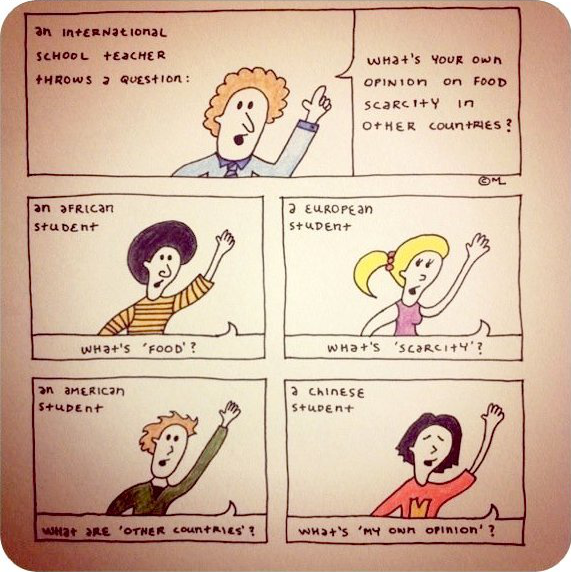 an INTERNATIONAL
SCHOOL TEACHER
THROWS a QUESTION:
WHAT'S YOUR OWN
OPINION ON FOOD
SCARCITY IN
OTHER COUNTRIES?
©ML
an AFRICAN
STUDENT
WHAT'S 'FOOD'?
a EUROPEAN
STUDENT
WHAT'S 'SCARCITY'?
an AMERICAN
STUDENT
WHAT ARE 'OTHER COUNTRIES'?
a CHINESE
STUDENT
M
WHAT'S 'MY OWN OPINION'?